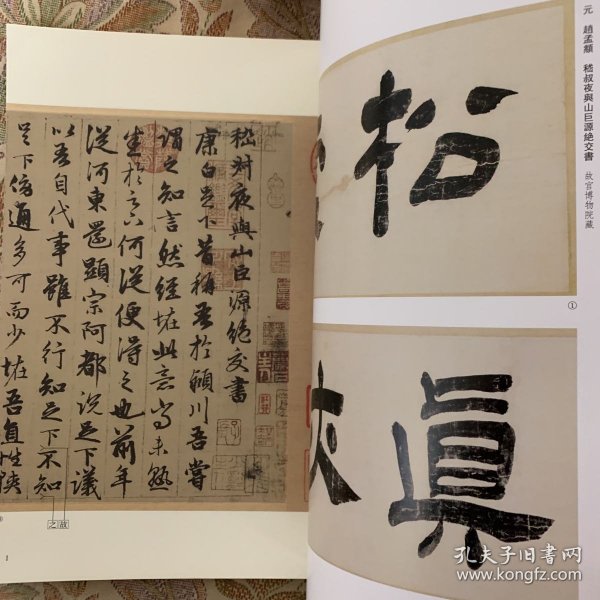 元 趙孟頫 嵇叔夜與山巨源絕交書 故宮博物院藏
松
①
眞
嵇叔夜與山巨源絕交書
康白足下昔稱吾於穎川吾嘗
謂之知言然經怪此意尚未熟
悉於足下何從便得之也前年
從河東還顯宗阿都說足下議
以吾自代事雖不行知足下不知
足下傍通多可而少怪吾直性狹
故
之
1
孔夫子旧书网
www.kongfz.com